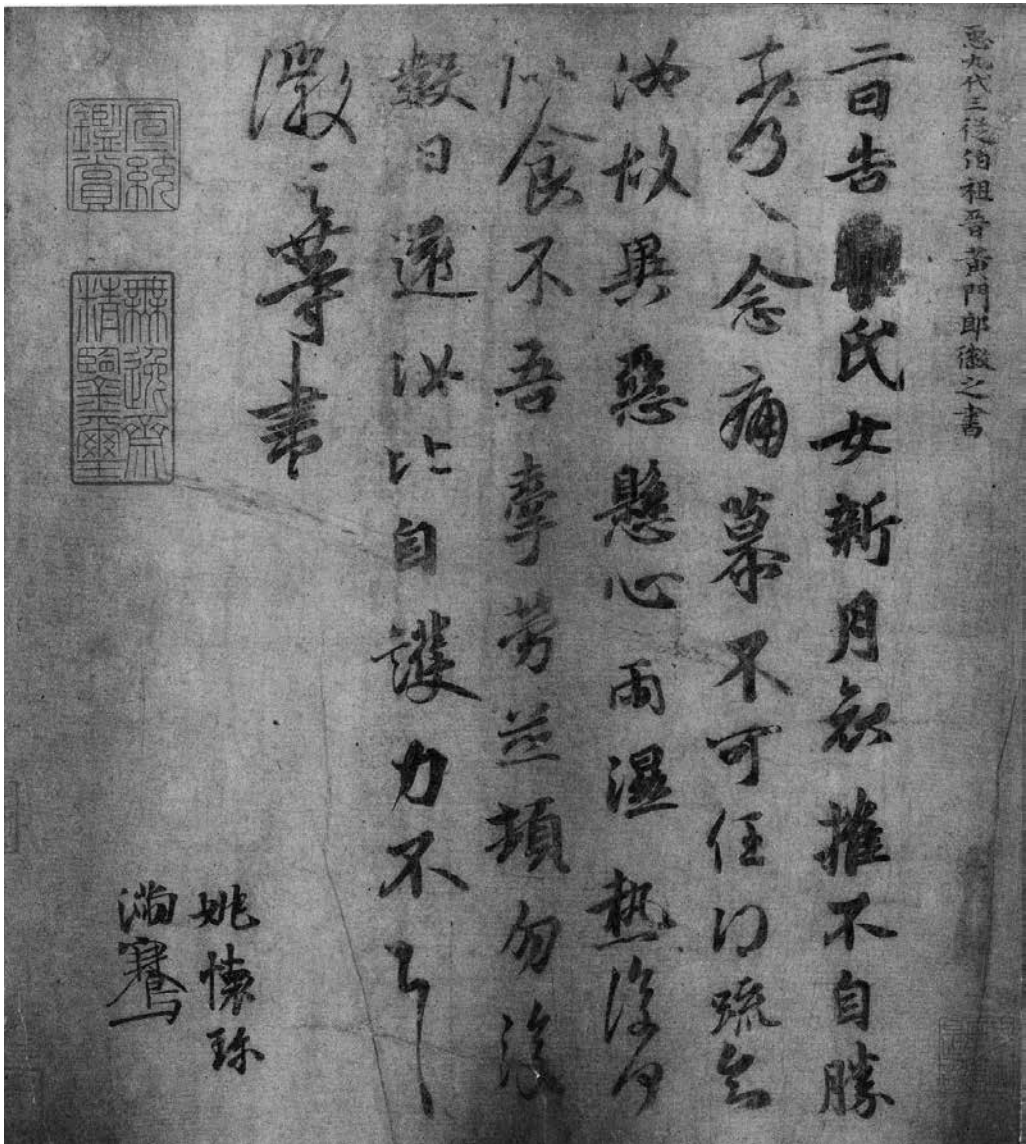 臣九代三從伯祖晉黃門郎徽之書
二日告氏女新月哀摧不自勝
奈何奈何念痛慕不可任得疏知
汝故異惡懸心雨濕熱復何
似食不吾牽勞並頓勿復
數日還汝比自護力不具
徽之等書
姚懷珍
滿騫
宣統鑑賞
無逸齋精鑒璽